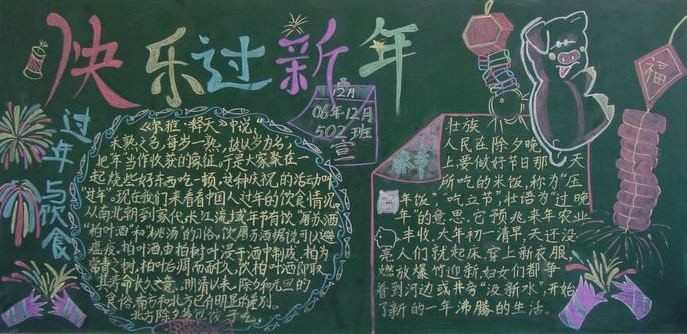 快乐过新年
12月
06年12月
502班
宣
福
过年与饮食
禾熟之名,每岁一熟,故以岁为名,
把年当作收获的象征。于是大家聚在一
起烧些好东西吃一顿,这种庆祝的活动叫
“过年”。现在我们来看看中国人过年的饮食情况,
长江流域年节有饮“屠苏酒”
“柏叶酒”和“桃汤”的习俗,饮屠苏酒据说可以避
瘟疫,柏叶酒由柏树叶浸于酒中制成,柏为
常青之树,柏叶后凋而耐久,饮柏叶酒
明清以来,除夕和元旦的
食俗,南方和北方已有明显的差别。
北方除夕
春节
壮族
人民在除夕晚
上要做好节日那一天
所吃的米饭,称为“压
年饭”。“吃立节”壮语为“过晚
年”的意思,它预兆来年农业
丰收。大年初一清早,天还没
亮人们就起床,穿上新衣服,
燃放爆竹迎新,妇女们都争
着到河边或井旁“汲新水”,开始
了新的一年沸腾的生活。